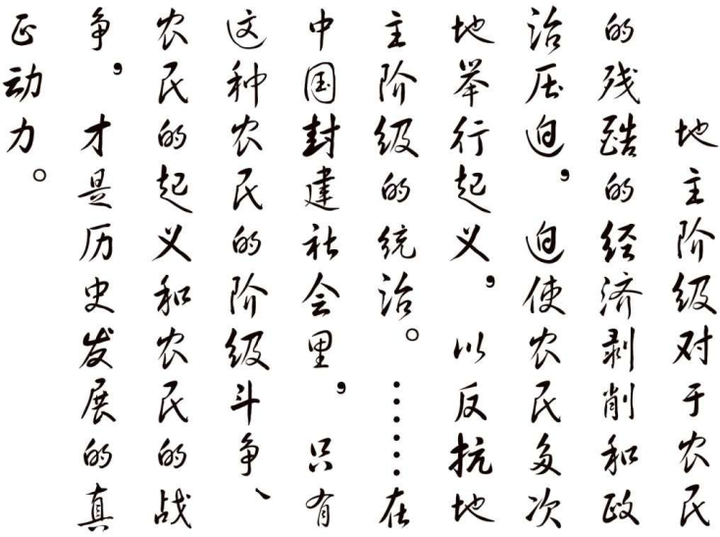 地主阶级对于农民
的残酷的经济剥削和政
治压迫，迫使农民多次
地举行起义，以反抗地
主阶级的统治。……在
中国封建社会里，只有
这种农民的阶级斗争、
农民的起义和农民的战
争，才是历史发展的真
正动力。